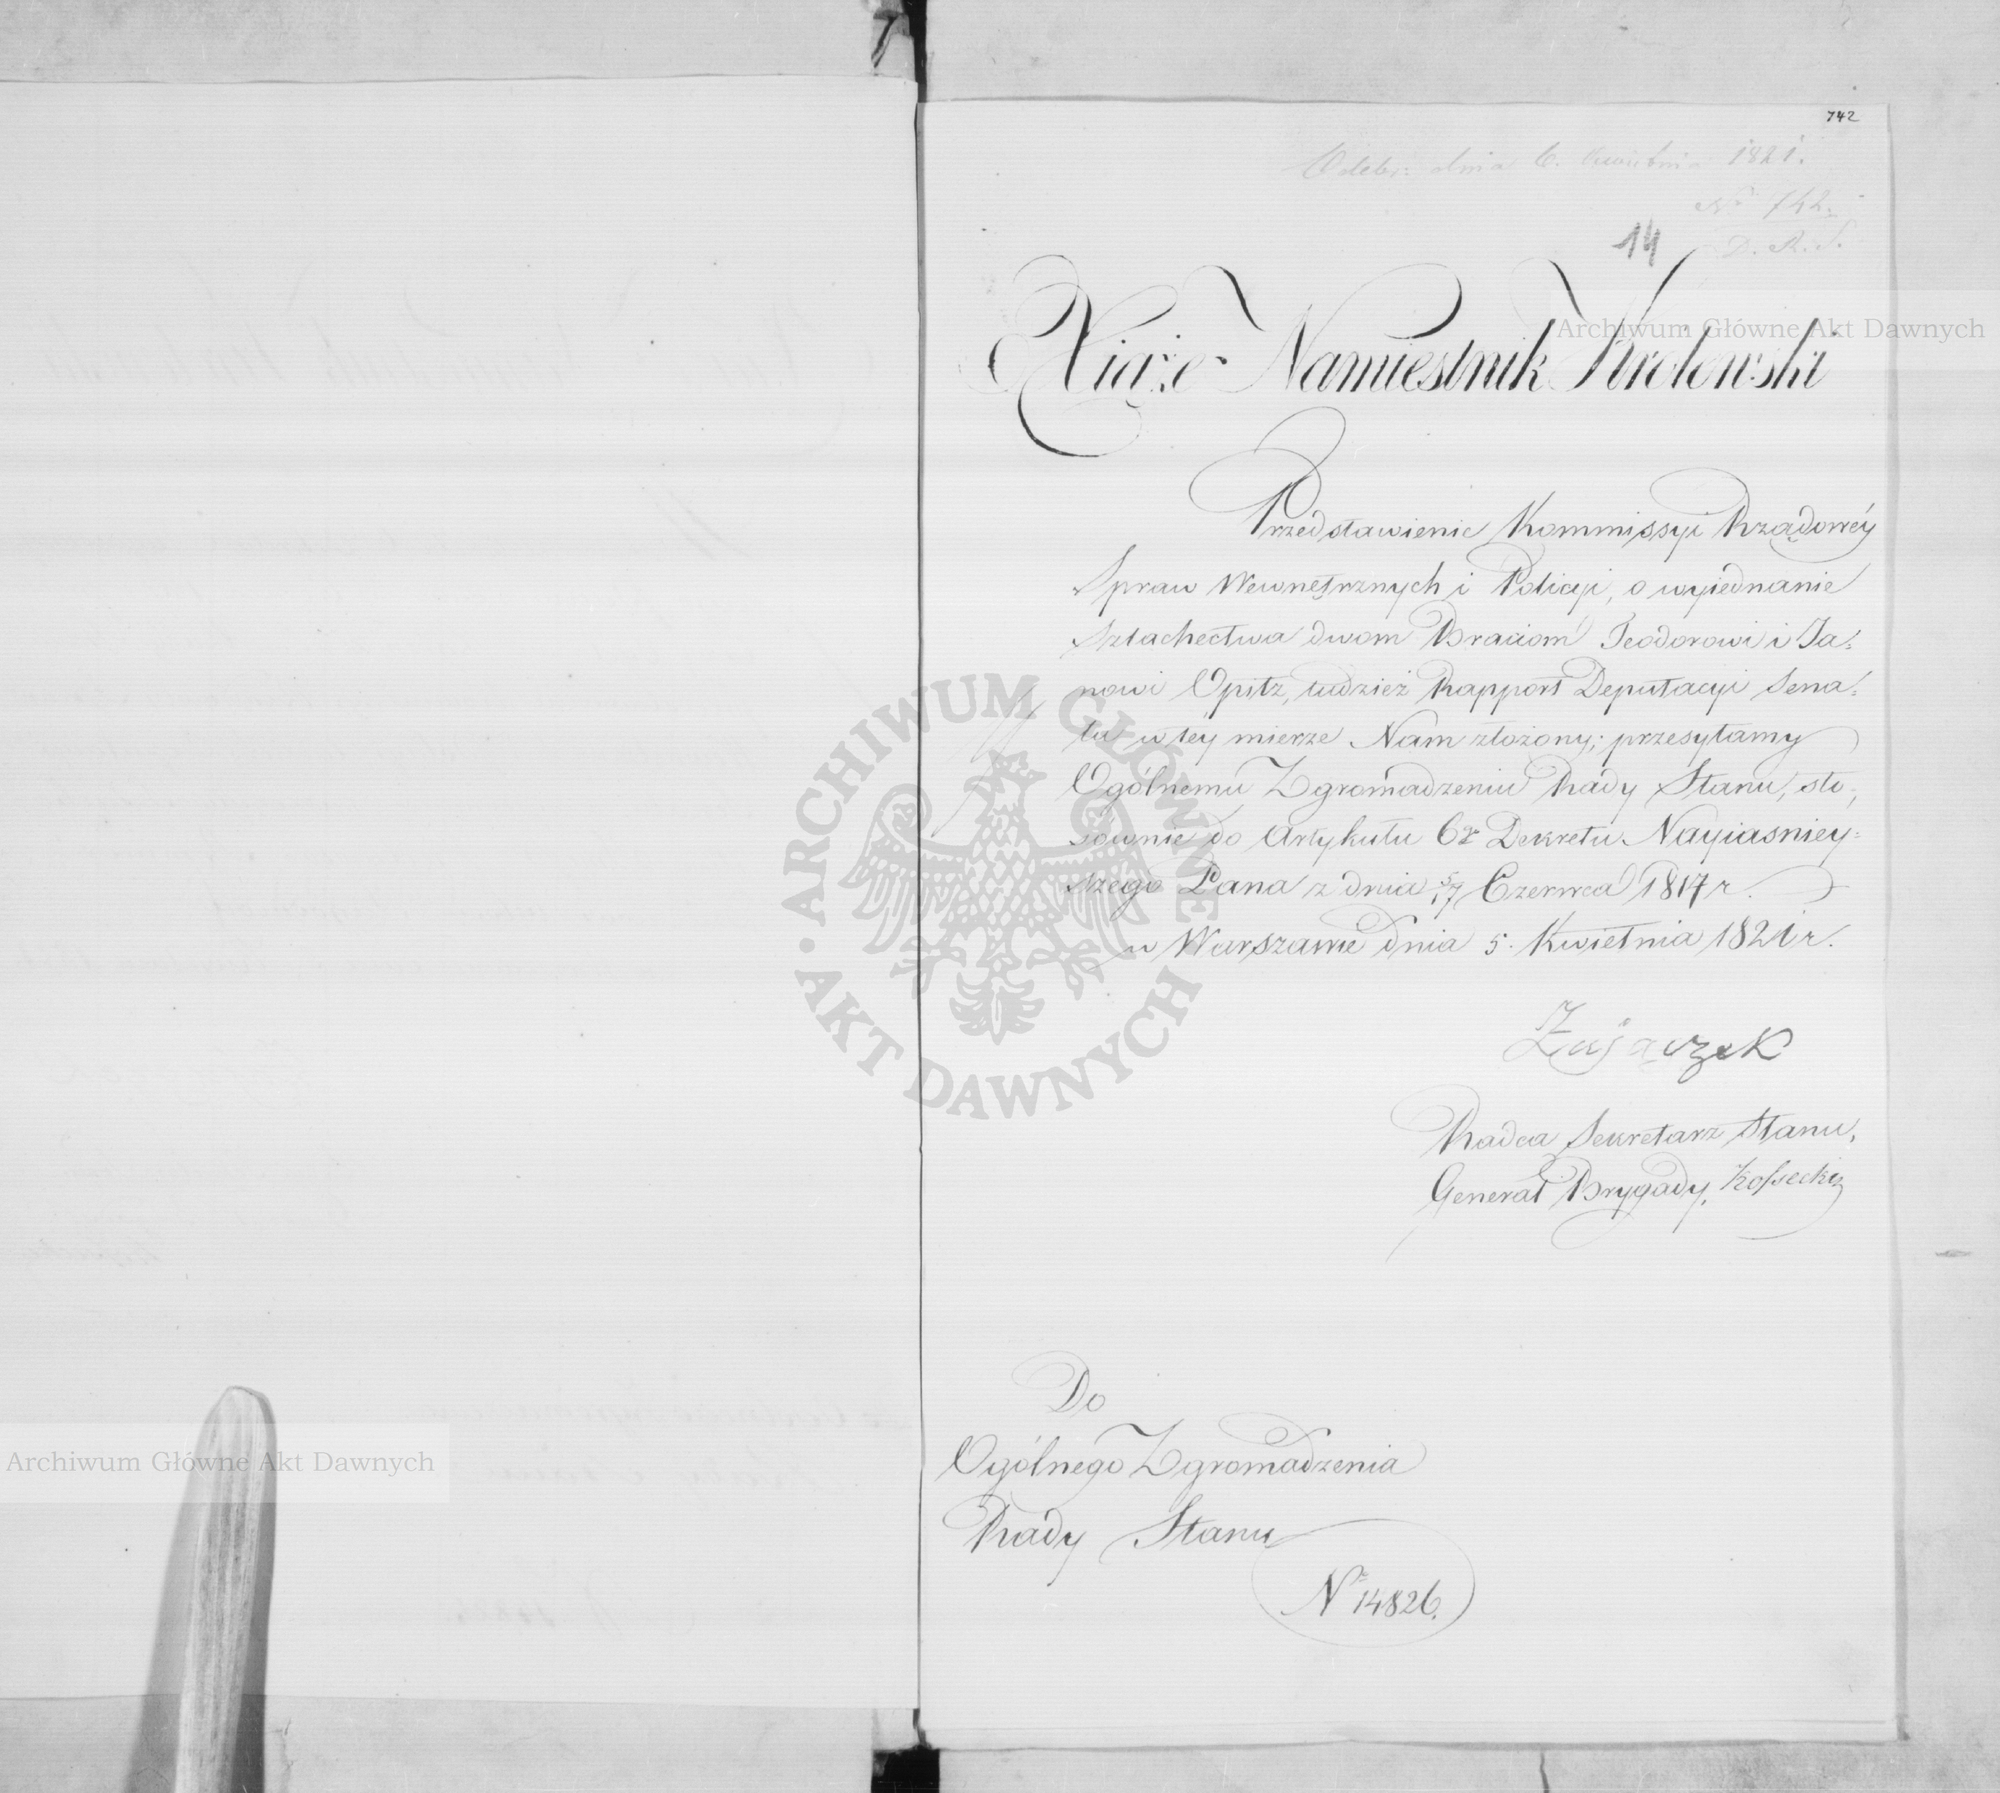 742
Odebr: dnia 6. Kwietnia 1821.
No 742.
D. R. S.
14
Xiąże Namiestnik Krolewski
Przedstawienie Kommissyi Rządowéy
Spraw Wewnętrznych i Policyi, o wyiednanie
szlachectwa dwom Braciom Teodorowi i Ja=
nowi Opitz, tudzież Rapport Deputacyi Sena=
tu w téy mierze Nam złożony; przesyłamy
Ogólnemu Zgromadzeniu Rady Stanu, sto=
sownie do Artykułu 6o Dekretu Nayiaśniey=
szego Pana z dnia 5/17 Czerwca 1817 r.
w Warszawie dnia 5. Kwietnia 1821 r.
Zajączek
Radca Sekretarz Stanu,
Generał Brygady, Kossecki
Do
Ogólnego Zgromadzenia
Rady Stanu
No 14826.
Archiwum Główne Akt Dawnych
ARCHIWUM GŁÓWNE AKT DAWNYCH
Archiwum Główne Akt Dawnych